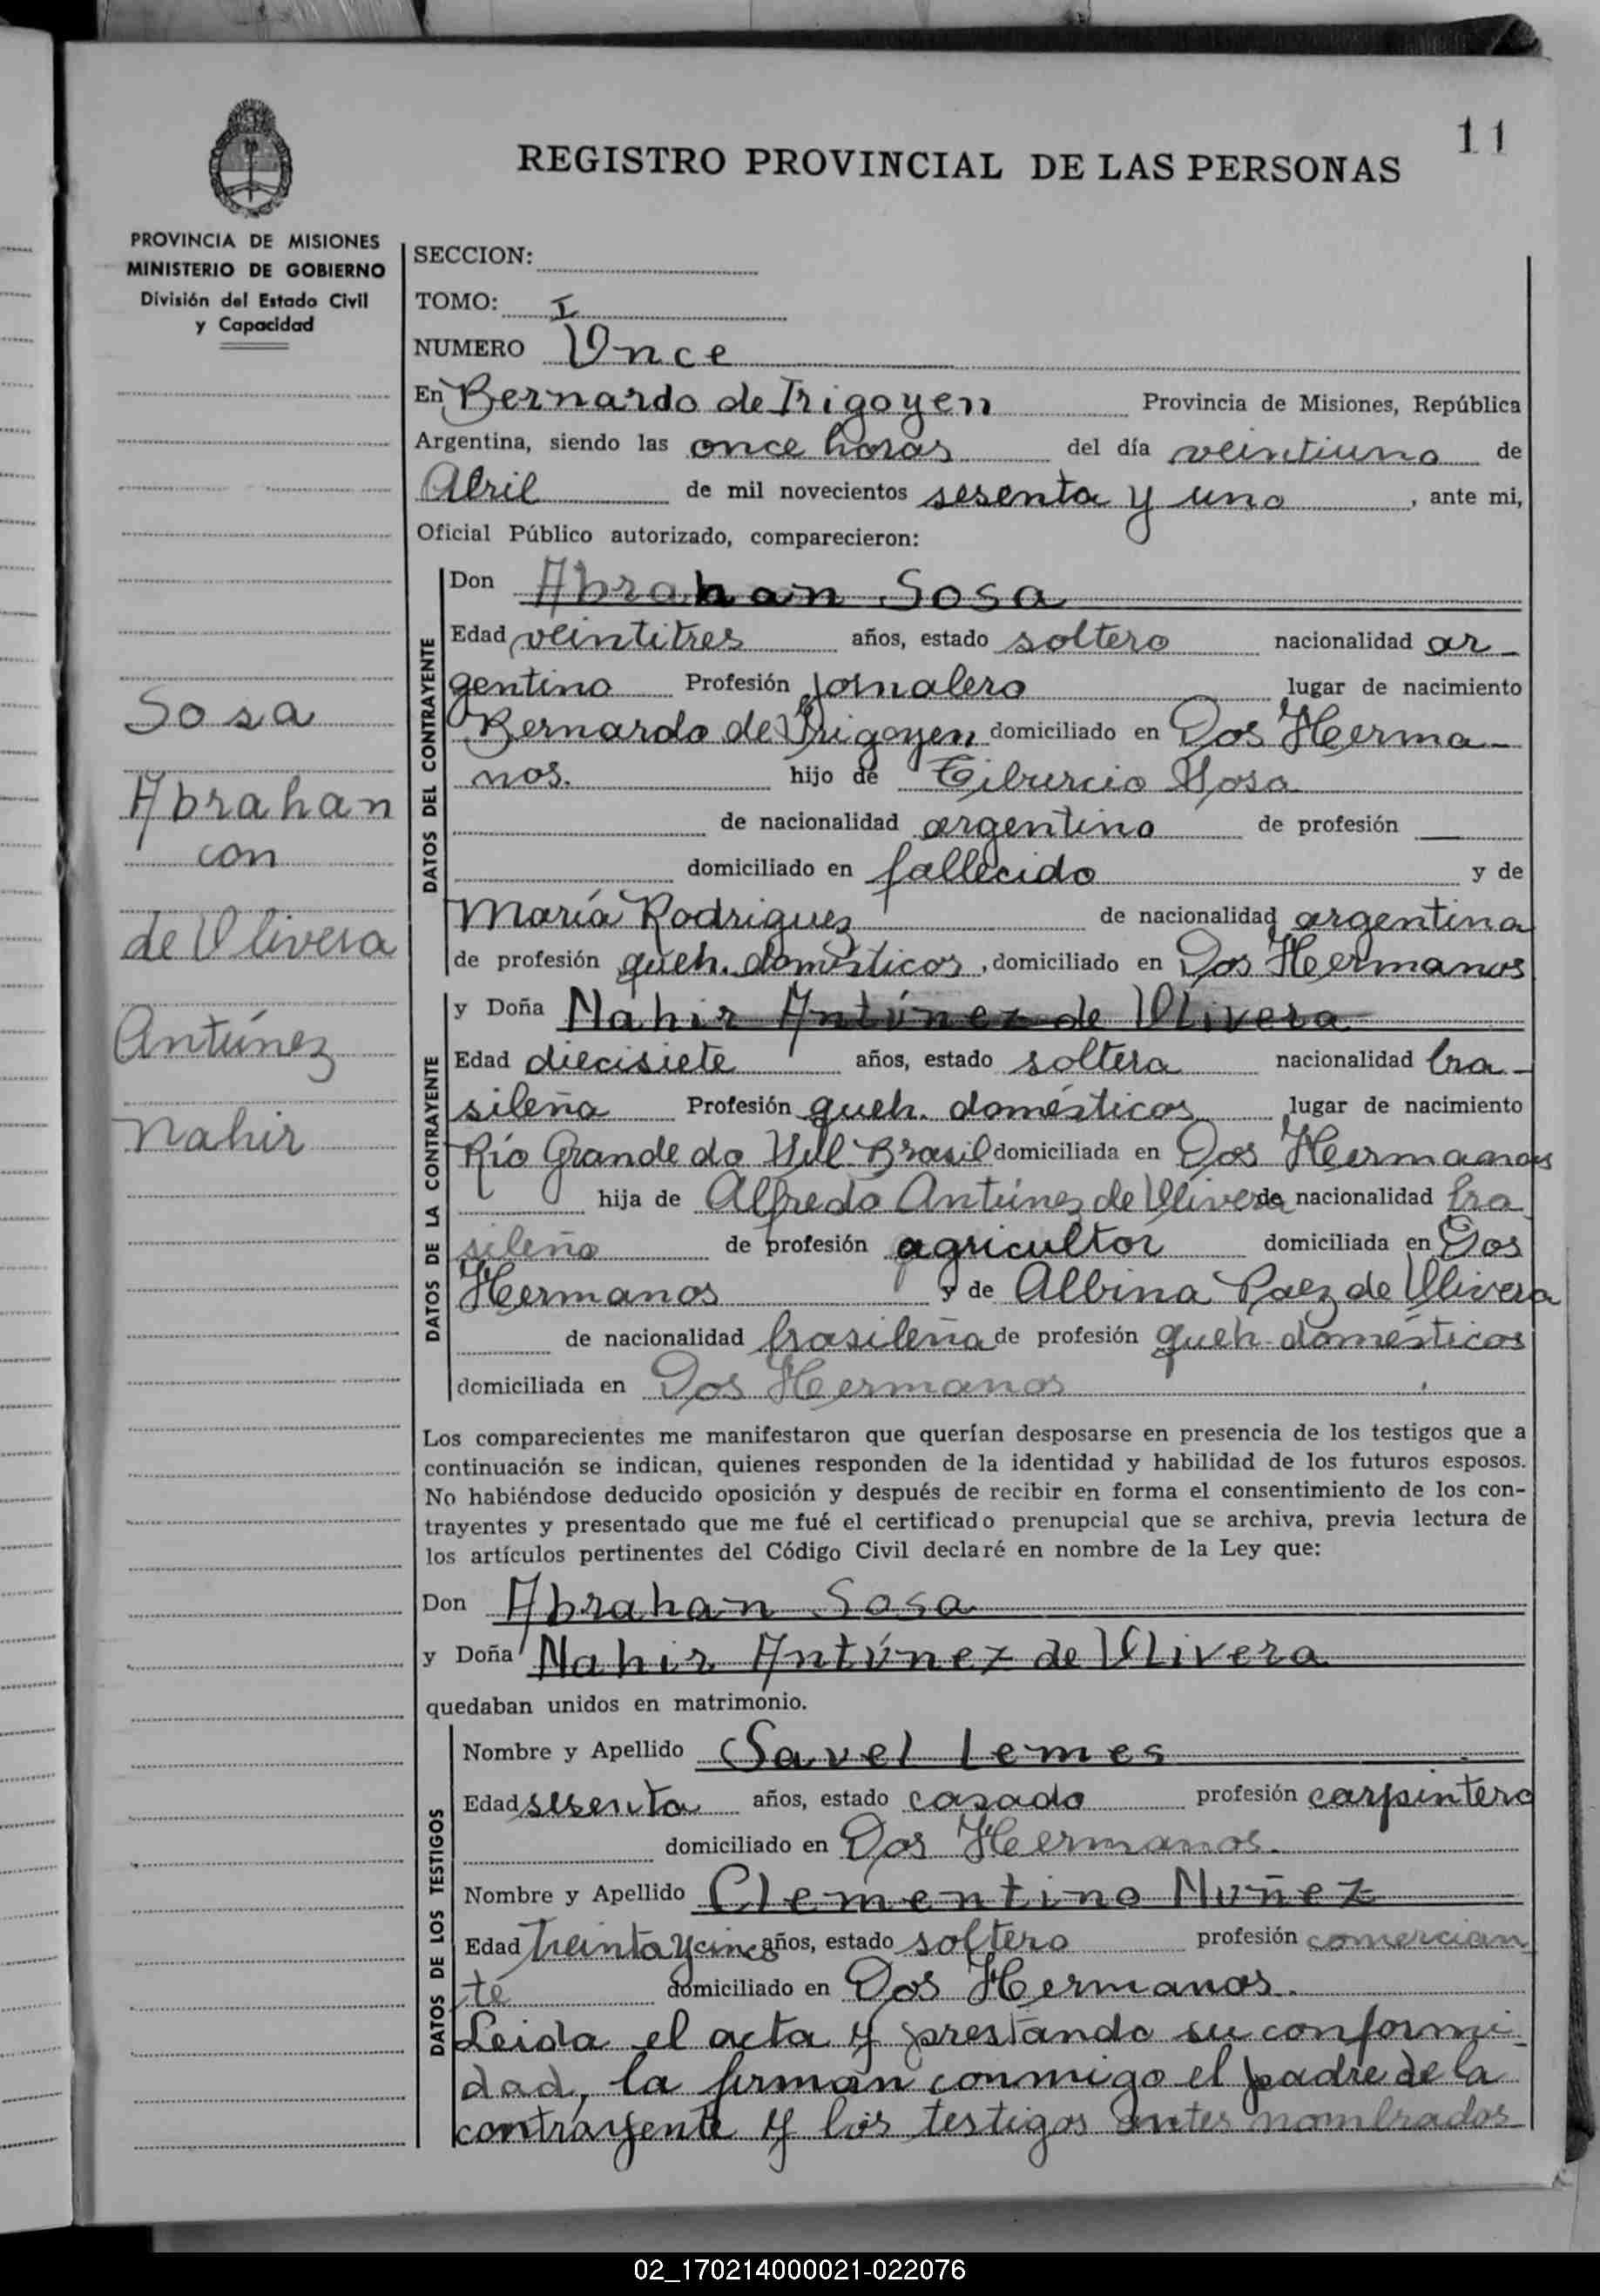 11
REGISTRO PROVINCIAL DE LAS PERSONAS
PROVINCIA DE MISIONES
MINISTERIO DE GOBIERNO
División del Estado Civil
y Capacidad
Sosa
Abrahan
con
de Olivera
Antúnez
Nahir
SECCION:
TOMO: I
NUMERO Once
En Bernardo de Irigoyen Provincia de Misiones, República
Argentina, siendo las once horas del día veintiuno de
Abril de mil novecientos sesenta y uno, ante mi,
Oficial Público autorizado, comparecieron:
DATOS DEL CONTRAYENTE
Don Abrahan Sosa
Edad veintitres años, estado soltero nacionalidad ar-
gentino Profesión jornalero lugar de nacimiento
Bernardo de Irigoyen domiciliado en Dos Herma-
nos. hijo de Tiburcio Sosa
de nacionalidad argentino de profesión —
domiciliado en fallecido y de
María Rodriguez de nacionalidad argentina
de profesión queh. domésticos, domiciliado en Dos Hermanos
DATOS DE LA CONTRAYENTE
y Doña Nahir Antúnez de Olivera
Edad diecisiete años, estado soltera nacionalidad bra-
sileña Profesión queh. domésticos lugar de nacimiento
Río Grande do Sul Brasil domiciliada en Dos Hermanos
hija de Alfredo Antúnez de Olivera de nacionalidad bra
sileño de profesión agricultor domiciliada en Dos
Hermanos y de Albina Paez de Olivera
de nacionalidad brasileña de profesión queh. domésticos
domiciliada en Dos Hermanos
Los comparecientes me manifestaron que querían desposarse en presencia de los testigos que a
continuación se indican, quienes responden de la identidad y habilidad de los futuros esposos.
No habiéndose deducido oposición y después de recibir en forma el consentimiento de los con-
trayentes y presentado que me fué el certificado prenupcial que se archiva, previa lectura de
los artículos pertinentes del Código Civil declaré en nombre de la Ley que:
Don Abrahan Sosa
y Doña Nahir Antúnez de Olivera
quedaban unidos en matrimonio.
DATOS DE LOS TESTIGOS
Nombre y Apellido Savel Lemes
Edad sesenta años, estado casado profesión carpintero
domiciliado en Dos Hermanos.
Nombre y Apellido Clementino Muñez
Edad treinta y cinco años, estado soltero profesión comercian
te domiciliado en Dos Hermanos.
Leida el acta y prestando su conformi-
dad, la firman conmigo el padre de la
contrayente y los testigos antes nombrados
02_170214000021-022076